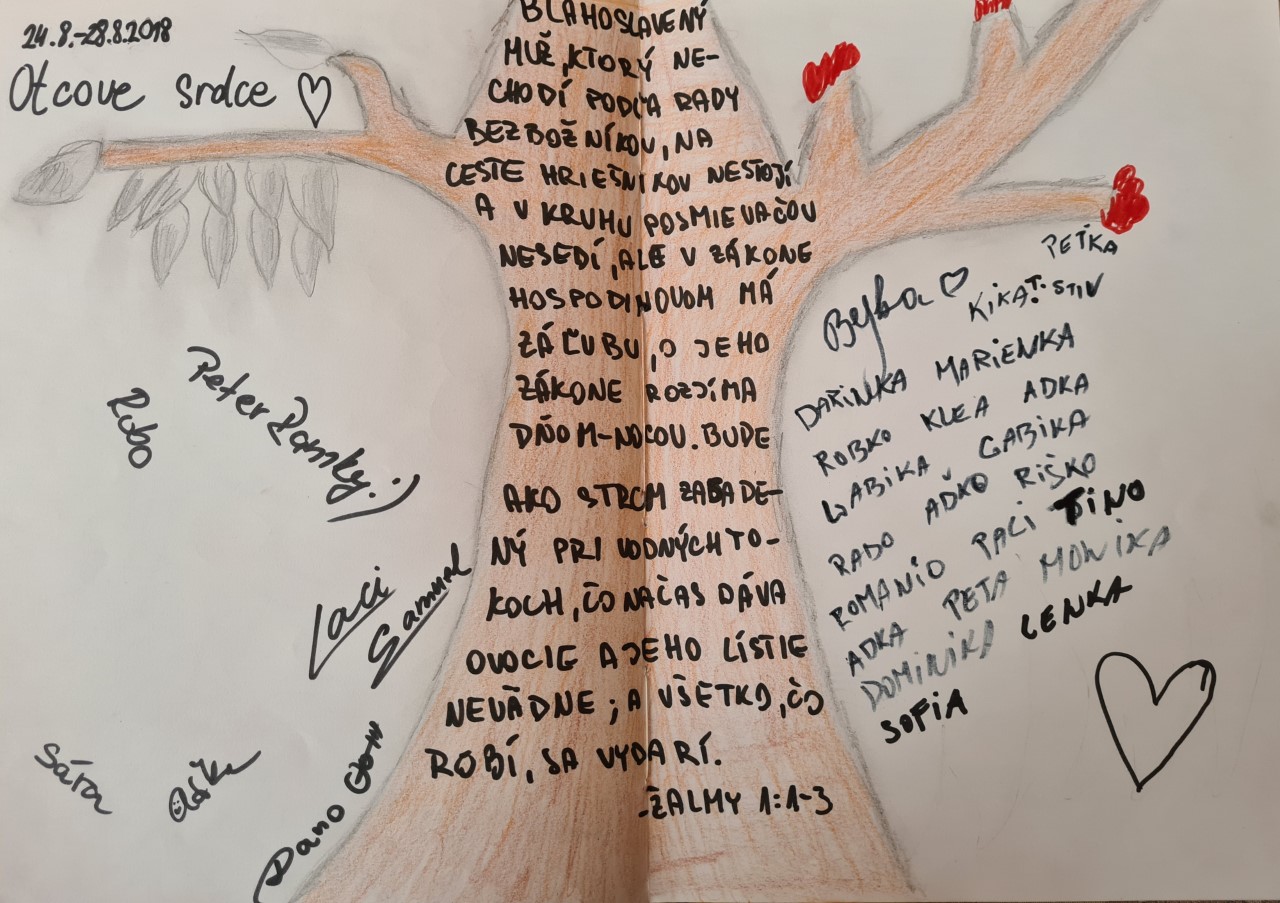 24.8.-28.8.2018
Otcove srdce
BLAHOSLAVENÝ
MUŽ, KTORÝ NE-
CHODÍ PODĽA RADY
BEZBOŽNÍKOV, NA
CESTE HRIEŠNIKOV NESTOJÍ
A V KRUHU POSMIEVAČOV
NESEDÍ, ALE V ZÁKONE
HOSPODINOVOM MÁ
ZÁĽUBU, O JEHO
ZÁKONE ROZJÍMA
DŇOM-NOCOU. BUDE
AKO STROM ZASADE-
NÝ PRI VODNÝCH TO-
KOCH, ČO NAČAS DÁVA
OVOCIE A JEHO LÍSTIE
NEVÄDNE; A VŠETKO, ČO
ROBÍ, SA VYDARÍ.
-ŽALMY 1:1-3
Peter
Robo
Laci
Samuel
Sára
Dano
PEŤKA
KIKA T. STIV
DARINKA MARIENKA
ROBKO KLEA ADKA
GABIKA
RADO AĎKO RIŠKO
ROMANIO PACI TINO
ADKA PETA MONIKA
DOMINIKA LENKA
SOFIA